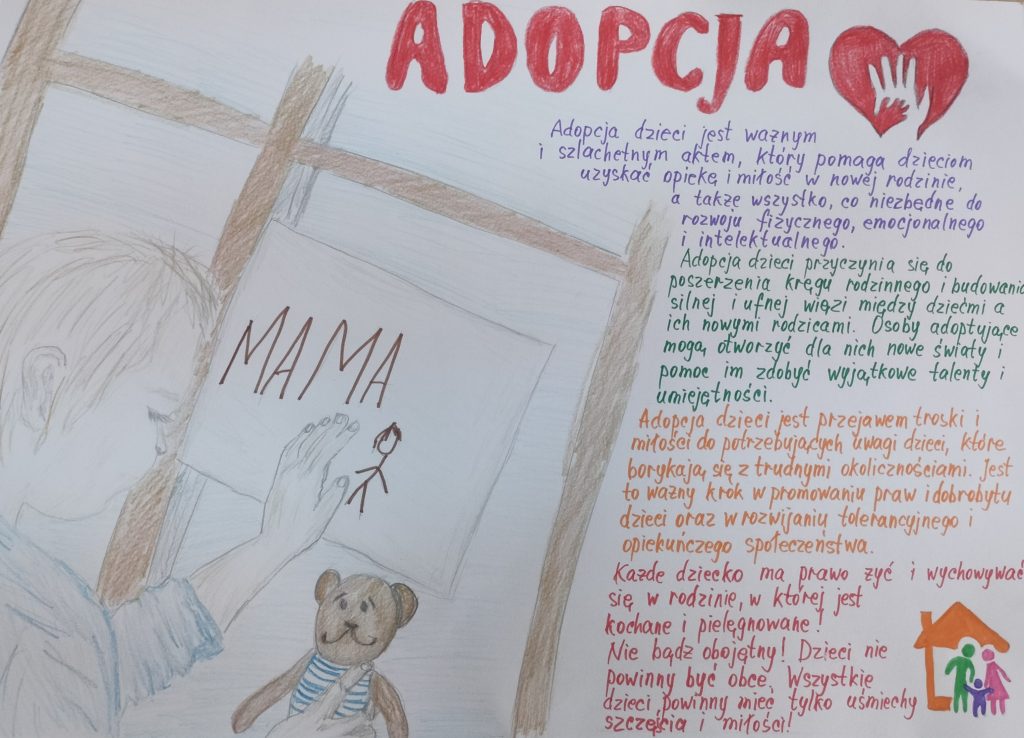 ADOPCJA
Adopcja dzieci jest ważnym
i szlachetnym aktem, który pomaga dzieciom
uzyskać opiekę i miłość w nowej rodzinie,
a także wszystko, co niezbędne do
rozwoju fizycznego, emocjonalnego
i intelektualnego.
Adopcja dzieci przyczynia się do
poszerzenia kręgu rodzinnego i budowania
silnej i ufnej więzi między dziećmi a
ich nowymi rodzicami. Osoby adoptujące
mogą otworzyć dla nich nowe światy i
pomóc im zdobyć wyjątkowe talenty i
umiejętności.
Adopcja dzieci jest przejawem troski i
miłości do potrzebujących uwagi dzieci, które
borykają się z trudnymi okolicznościami. Jest
to ważny krok w promowaniu praw i dobrobytu
dzieci oraz w rozwijaniu tolerancyjnego i
opiekuńczego społeczeństwa.
Każde dziecko ma prawo żyć i wychowywać
się w rodzinie, w której jest
kochane i pielęgnowane!
Nie bądź obojętny! Dzieci nie
powinny być obce. Wszystkie
dzieci powinny mieć tylko uśmiechy
szczęścia i miłości!
MAMA